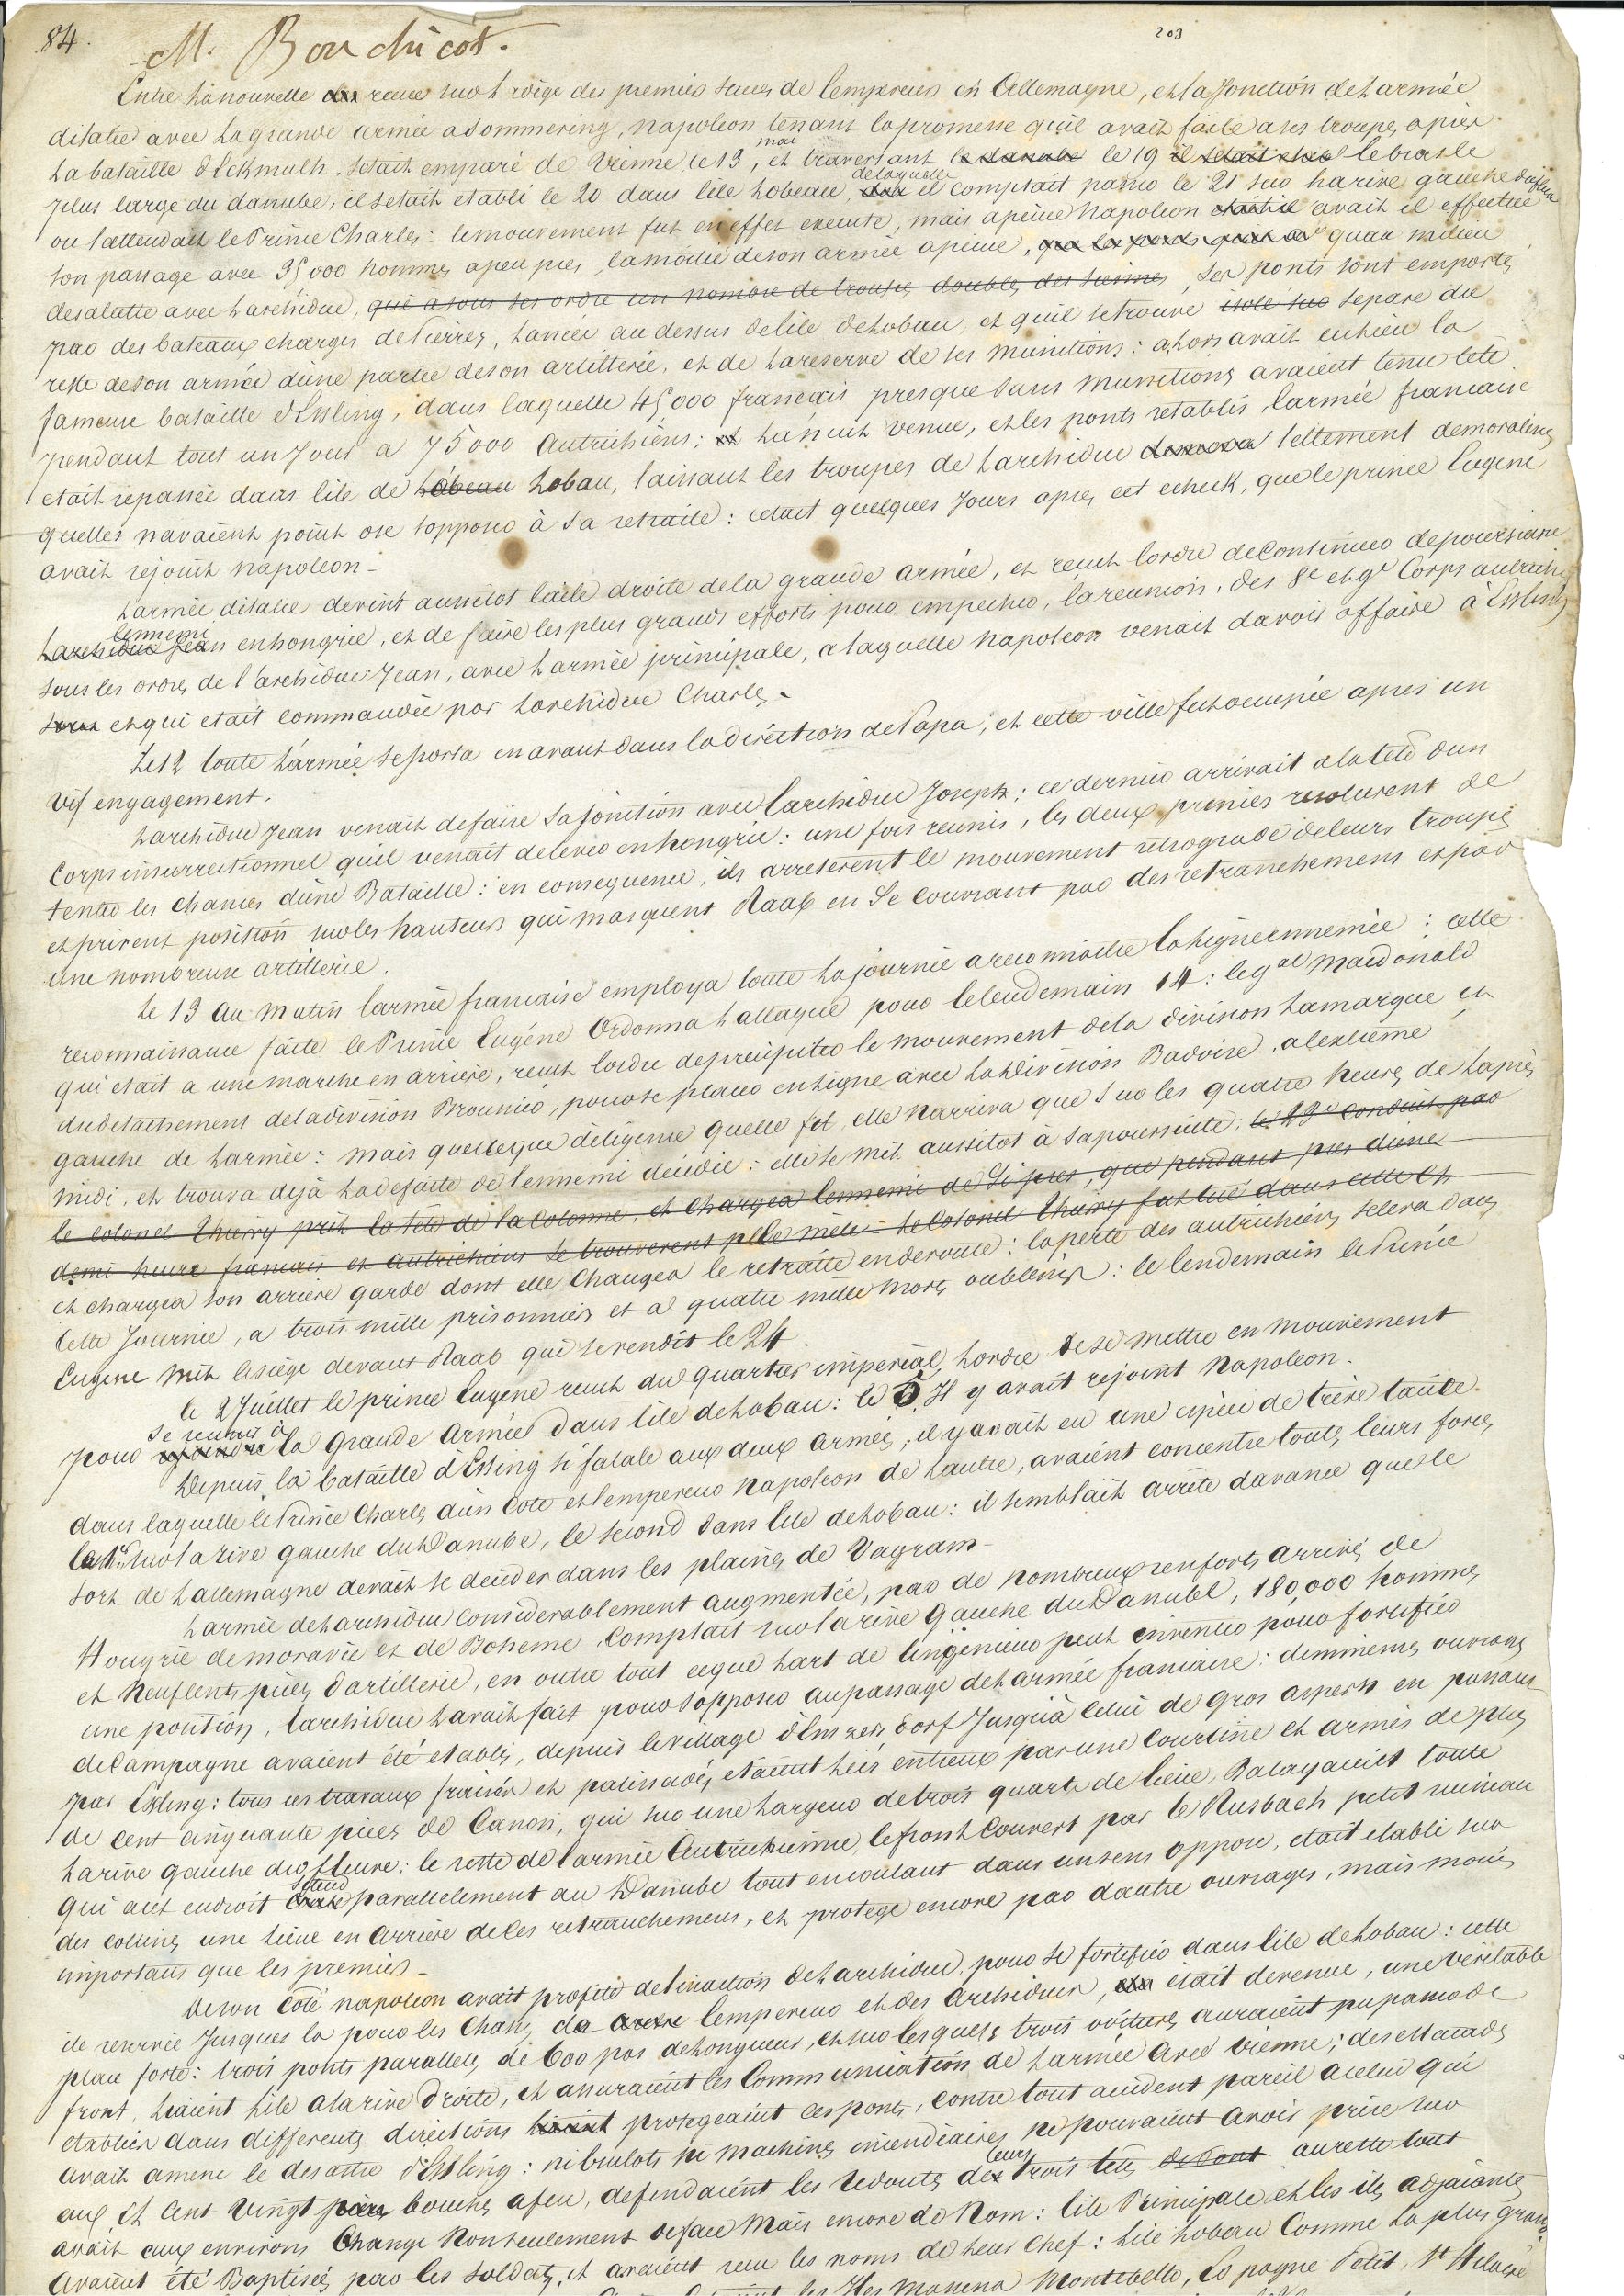 84.
203
M. Bouchicot.
Entre la nouvelle recue sur l'
des premiers succes de l'empereur en Allemagne, et la Jonction de l'armée
ditalie avec la grande armée a Sommering, napoleon tenant la promesse qu'il avait faite a ses troupes apres
la bataille d'Eckmulh, setait emparé de Vienne le 13 mai, et traversant le danube le 19 il setait le bras le
plus large du danube, il setait etabli le 20 dans l'ile Lobeau, de laquelle il comptait passer le 21 sur la rive gauche du fleuve
ou l'attendait le Prince Charles: le mouvement fut en effet execute, mais a peine Napoleon avait il effectué
son passage avec 35000 hommes a peu pres, la moitie de son armée a peine, quau milieu
de sa lutte avec l'archiduc, qui a sous ses ordre un nombre de troupes doubles des siennes, ses ponts sont emportes
par des bateaux charges de Pierres, lancées au dessus de l'ile de Lobau, et quil se trouve isolé sur separe du
reste de son armée d'une partie de son artillerie, et de la reserve de ses munitions: alors avait eu lieu la
fameuse bataille d'Essling, dans laquelle 45000 francais presque sans munitions avaient tenu tete
pendant tout un Jour a 75000 Autrichiens; et la nuit venue, et les ponts retablis, l'armée francaise
etait repassée dans l'ile de Lobeau Lobau, laissant les troupes de l'archiduc tellement demoralisees
quelles n'avaient point ose sopposer à sa retraite: cetait quelques Jours apres cet echeck, que le prince Eugene
avait rejoint napoleon -
L'armée ditalie devint aussitot l'aile droite de la grande armée, et recut lordre de Continuer de poursuivre
L'archiduc Jean l'ennemi en hongrie, et de faire les plus grands efforts pour empecher, la reunion, des 8e et 9e Corps autrich.
sous les ordres de l'archiduc Jean, avec l'armée principale, a laquelle napoleon venait davoir affaire à Essling
sous et qui etait commandée par l'archiduc Charles -
Le 12 toute l'armée se porta en avant dans la direction de Papa; et cette ville fut occupée apres un
vif engagement.
L'archiduc Jean venait de faire sa jonction avec l'archiduc Joseph: ce dernier arrivait a la tete d'un
Corps insurrectionnel qu'il venait de lever en hongrie: une fois reunis, les deux princes resolurent de
tenter les chances d'une Bataille: en consequence, ils arreterent le mouvement retrograde de leurs troupes
et prirent position sur les hauteurs qui masquent Raab en se couvrant par des retranchemens et par
une nombreuse artillerie.
Le 13 au matin l'armée francaise employa toute la journée a reconnaitre la ligne ennemie: cette
reconnaissance faite le Prince Eugéne Ordonna l'attaque pour le lendemain 14: le gal Macdonald
qui etait a une marche en arriere, recut lordre de precipiter le mouvement de la division Lamarque et
du detachement de la division Broussier, pour se placer en ligne avec la division Badoise, a l'extreme
gauche de l'armée: mais quelleque diligence quelle fit, elle n'arriva que sur les quatre heures de l'apres
midi, et trouva dejà la defaite de l'ennemi decidée: elle se mit aussitot à sa poursuite: le 23e conduit par
le colonel Thierry prit la tete de la colonne, et chargea l'ennemi de si pres, que pendant pres d'une
demi heure francais et autrichiens se trouverent pele mele - le colonel Thierry fut tué dans cette ch
et chargea son arriere garde dont elle changea la retraite en deroute: la perte des autrichiens seleva dans
cette Journée, a trois mille prisonniers et a quatre mille morts ou blessés: le lendemain le Prince
Eugene mit le siege devant Raab qui se rendit le 24.
le 2 Juillet le prince Eugene recut du quartier imperial, l'ordre de se mettre en mouvement
pour rejoindre se reunir à la grande armée dans l'ile de Lobau: le 5 Il y avait rejoint Napoleon.
Depuis la bataille d'Essling si fatale aux deux armées, il y avait eu une espece de treve tacite.
dans laquelle le Prince Charles d'un cote et l'empereur Napoleon de lautre, avaient concentre toutes leurs forces
le 1er sur la rive gauche du Danube, le second dans l'ile de Lobau: il semblait arrete davance que le
sort de l'allemagne devait se decider dans les plaines de Vagram -
L'armée de l'archiduc considerablement augmentée, par de nombreux renforts arrivés de
Hongrie de moravie et de Boheme, Comptait sur la rive gauche du Danube, 180,000 hommes
et neuf cents pieces d'artillerie, en outre tout ceque l'art de l'ingenieur peut inventer pour fortifier
une position, l'archiduc l'avait fait pour sopposer au passage de l'armée francaise: d'immenses ouvrages
de Campagne avaient été etablis, depuis le village d'Enzersdorf Jusqu'à celui de Gros aspern en passant
par Essling: tous ces travaux fraisés et palissadés, etaient liés entreux par une courtine et armés de plus
de cent cinquante pieces de Canon, qui sur une largeur de trois quarts de lieue, Balayaient toute
la rive gauche du fleuve: le reste de l'armée Autrichienne, le front Couvert par le Rusbach petit ruisseau
qui a cet endroit coule s'etend parallelement au Danube tout en coulant dans un sens oppose, etait etabli sur
des collines une lieue en arriere de ces retranchemens, et protege encore par dautre ouvrages, mais moins
importans que les premiers -
De son Coté napoleon avait profité de l'inaction de l'archiduc, pour se fortifier dans l'ile de Lobau: cette
ile reservée Jusques la pour les Chasses de l'empereur et des archiducs, était devenue, une veritable
place forte: trois ponts paralleles de 600 pas de longueur, et sur lesquels trois voitures auraient pu passer de
front, liaient l'ile a la rive droite, et assuraient les Communication de l'armée avec vienne; des estacades
etablies dans differents directions protegeaient ces ponts, contre tout accident pareil a celui qui
avait amené le desastre d'Essling: ni brulots ni machines incendiaires ne pouvaient avoir prise sur
eux Et Cent Vingt pieces bouches a feu, defendaient les redoutes des leurs trois tetes de Pont au reste tout
avait aux environs Changé Non seulement de face Mais encore de Nom: l'ile Principale, et les iles adjacentes
avaient été Baptisées par les soldats, et avaient recu les noms de leur Chef: l'ile Lobeau Comme la plus grande
les Iles Massena Montebello, Espagne Petit, St Hilaire